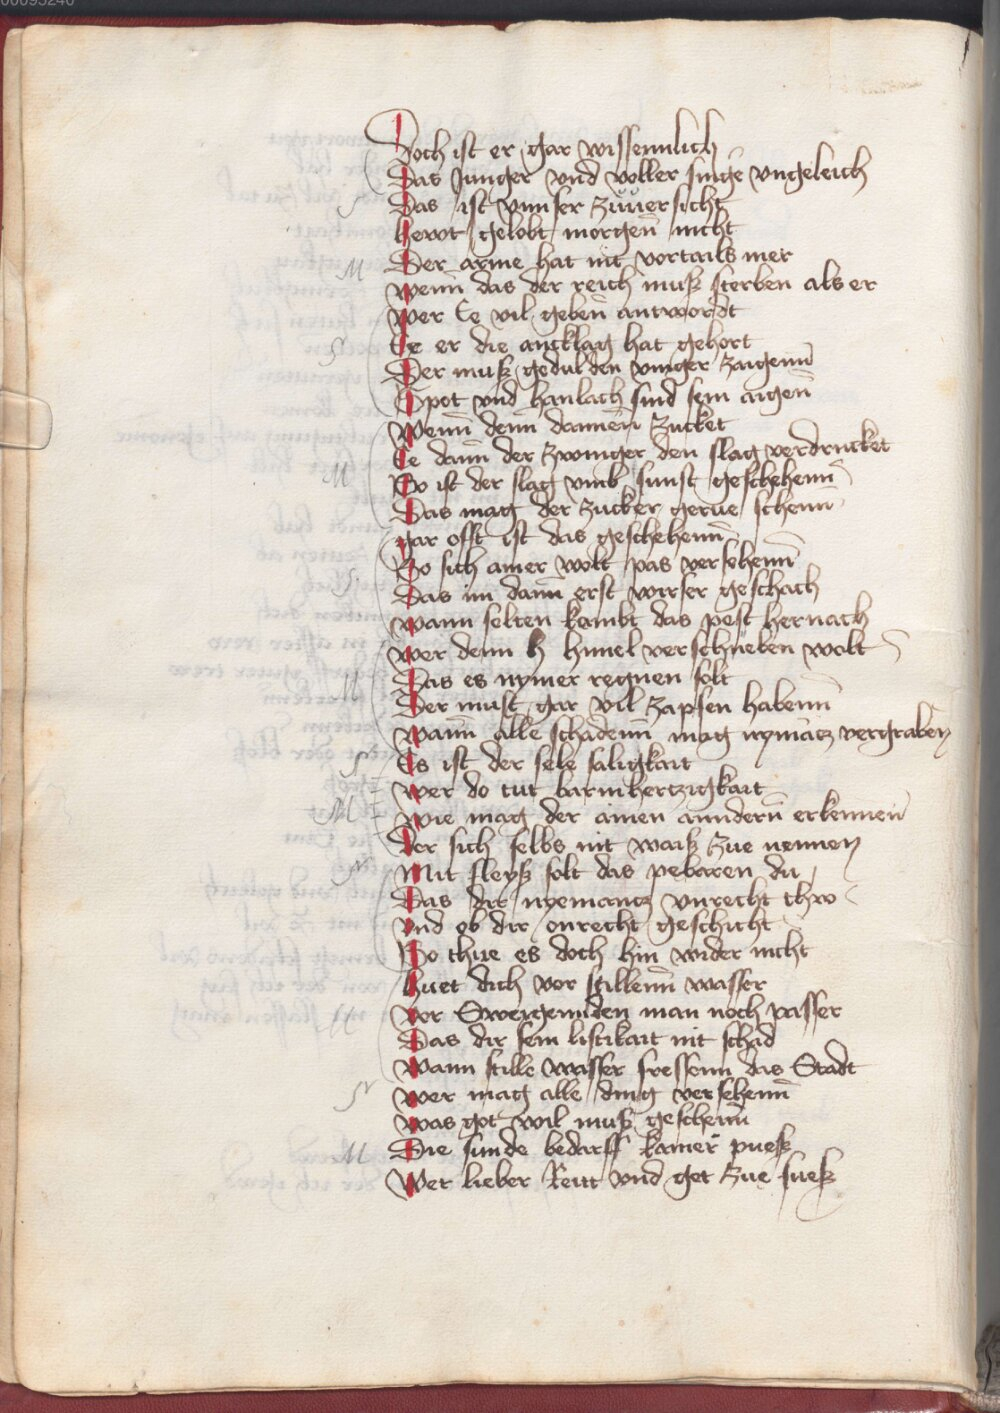 Doch ist er gar wissennlich
Das Junger vnd voller singe vngeleich
Das ist vnnser zuuersicht
hewt gelobt morgen nicht
Der arme hat nit vortails mer
wenn das der reich muß sterben als er
wer Ee vil geben antwordt
Ee er die ancklag hat gehort
Der muß gedulden vinger zaigenn
Spot vnd hanlach sind sein aigen
Wenn denn dannen zucket
Ee dann der zwinger den slag verdrucket
So ist der slag vmb sunst geschehenn
Das mag der zucker gerne schenn
gar offt ist das geschehenn
So sich ainer wolt pas versehenn
Das im dann erst wirser geschach
wann selten kombt das pest hernach
wer denn h himel verschieben wolt
Das es nymer regnen solt
Der must gar vil zapfen habenn
wann alle schadenn mag nymätz vergraben
Es ist der sele saligkait
wer do tut barmhertzigkait
wie mag der ainen anndern erkennen
der sich selbs nit waiß zue nennen
Mit fleyß solt das pebaren du
Das dir nyemantz vnrecht thw
vnd ob dir onrecht geschicht
So thue es doch hin wider nicht
huet dich vor stillenn wasser
vor Sweigenden man noch passer
Das dir sein listikait nit schad
wann stille wasser fressenn das Stadt
wer mag alle ding versehenn
was got wil muß geschenn
Die sunde bedarff kainer pueß
Wer lieber Reitt vnd get zue fueß